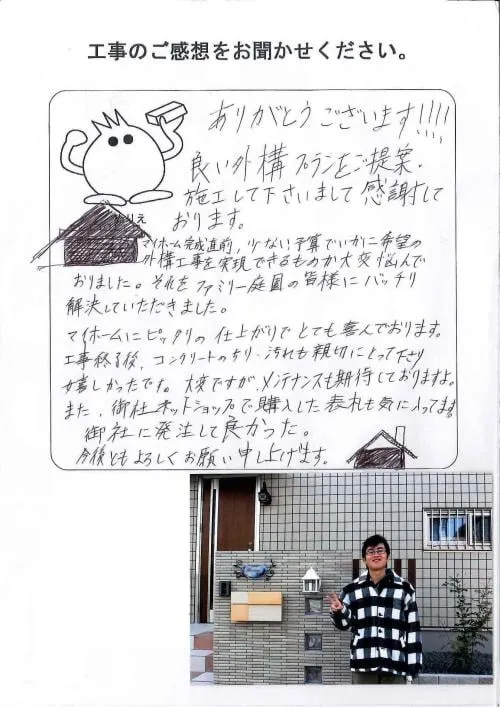 工事のご感想をお聞かせください。
ありがとうございます!!!!
良い外構プランをご提案、
施工して下さいまして感謝して
おります。
マイホーム完成直前、少ない予算でいかに希望の
外構工事を実現できるものか大変悩んで
おりました。それをファミリー庭園の皆様にバッチリ
解決していただきました。
マイホームにピッタリの仕上がりでとても喜んでおります。
工事終了後、コンクリートのちり、汚れも親切にとって下さり
嬉しかったです。大変ですが、メンテナンスも期待しておりますよ。
また、御社ネットショップで購入した表札も気に入ってます。
御社に発注して良かった。
今後ともよろしくお願い申し上げます。